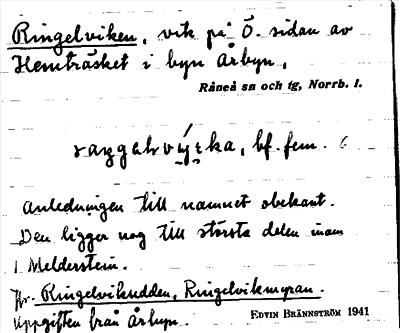 Ringelviken, vik på Ö. sidan av
Hemträsket i byn Årbyn.
Råneå sn och tg, Norrb. l.
bf. fem.
Anledningen till namnet obekant.
Den ligger nog till största delen inom
Melderstein.
Jfr. Ringelviksudden, Ringelvikmyran.
Uppgiften från Årbyn.
EDVIN BRÄNNSTRÖM 1941